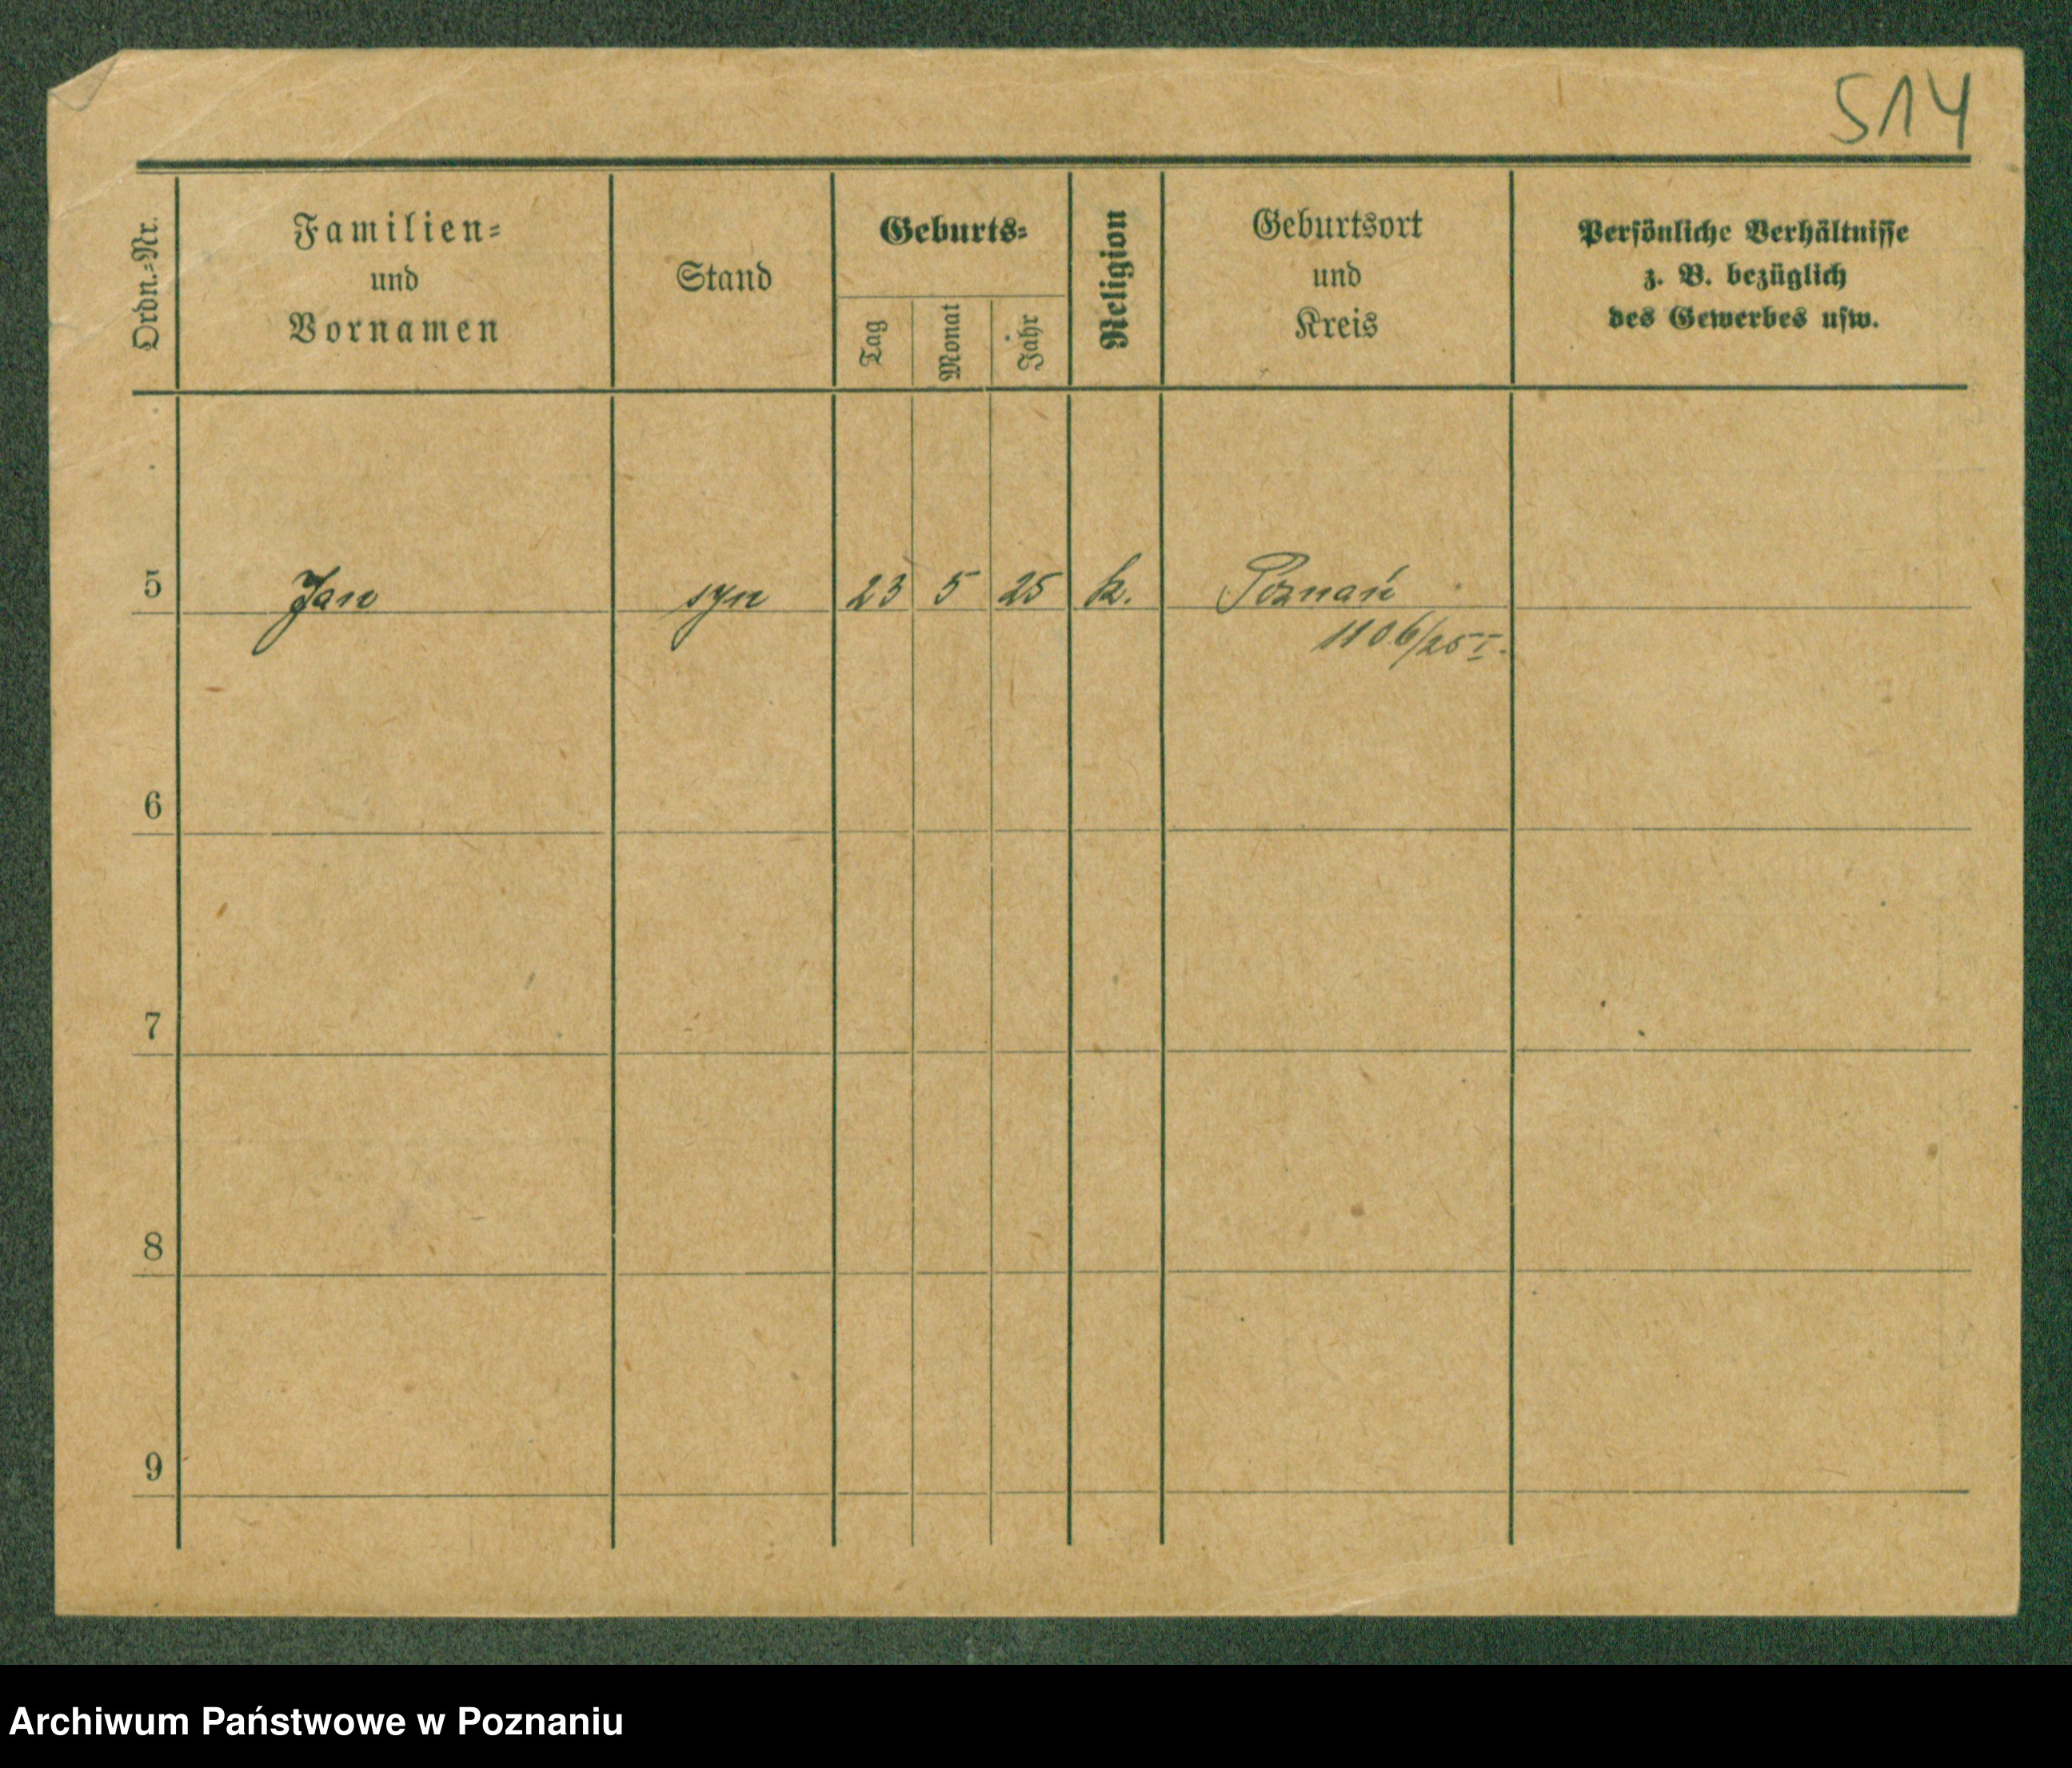 514
Ordn.=Nr.
Familien=
und
Vornamen
Stand
Geburts=
Tag
Monat
Jahr
Religion
Geburtsort
und
Kreis
Persönliche Verhältnisse
z. B. bezüglich
des Gewerbes usw.
5 Jan syn 23 5 25 k. Poznań
1106/25 I.
6
7
8
9
Archiwum Państwowe w Poznaniu